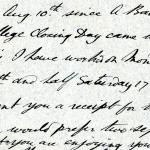 Aug 10th. since A Ba
llege Closing Day came a
I have worked on Mon
th and half Saturday 17
nt you a receipt for t
would prefer two se
you are enjoying your